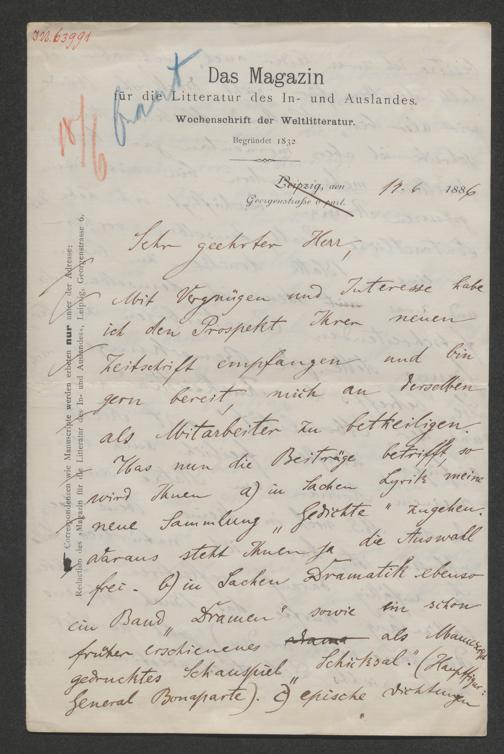 J.N. 63991
Das Magazin
für die Litteratur des In- und Auslandes.
Wochenschrift der Weltlitteratur.
Begründet 1832
18/6
Leipzig, den 17. 6 1886
Georgenstraße 6 part.
Correspondenzen wie Manuscripte werden erbeten nur unter der Adresse:
Redaction des »Magazin für die Litteratur des In- und Auslandes«, Leipzig, Georgenstrasse 6.
Sehr geehrter Herr,
Mit Vergnügen und Interesse habe
ich den Prospekt Ihrer neuen
Zeitschrift empfangen und bin
gern bereit, mich an derselben
als Mitarbeiter zu betheiligen.
Was nun die Beiträge betrifft, so
wird Ihnen a) in Sachen Lyrik meine
neue Sammlung „Gedichte" zugehen.
daraus steht Ihnen ja die Auswahl
frei. b) in Sachen Dramatik ebenso
ein Band „Dramen" sowie ein schon
früher erschienenes Drama als Manuscript
gedrucktes Schauspiel „Schicksal". (Hauptfigur:
General Bonaparte). c) epische Dichtungen